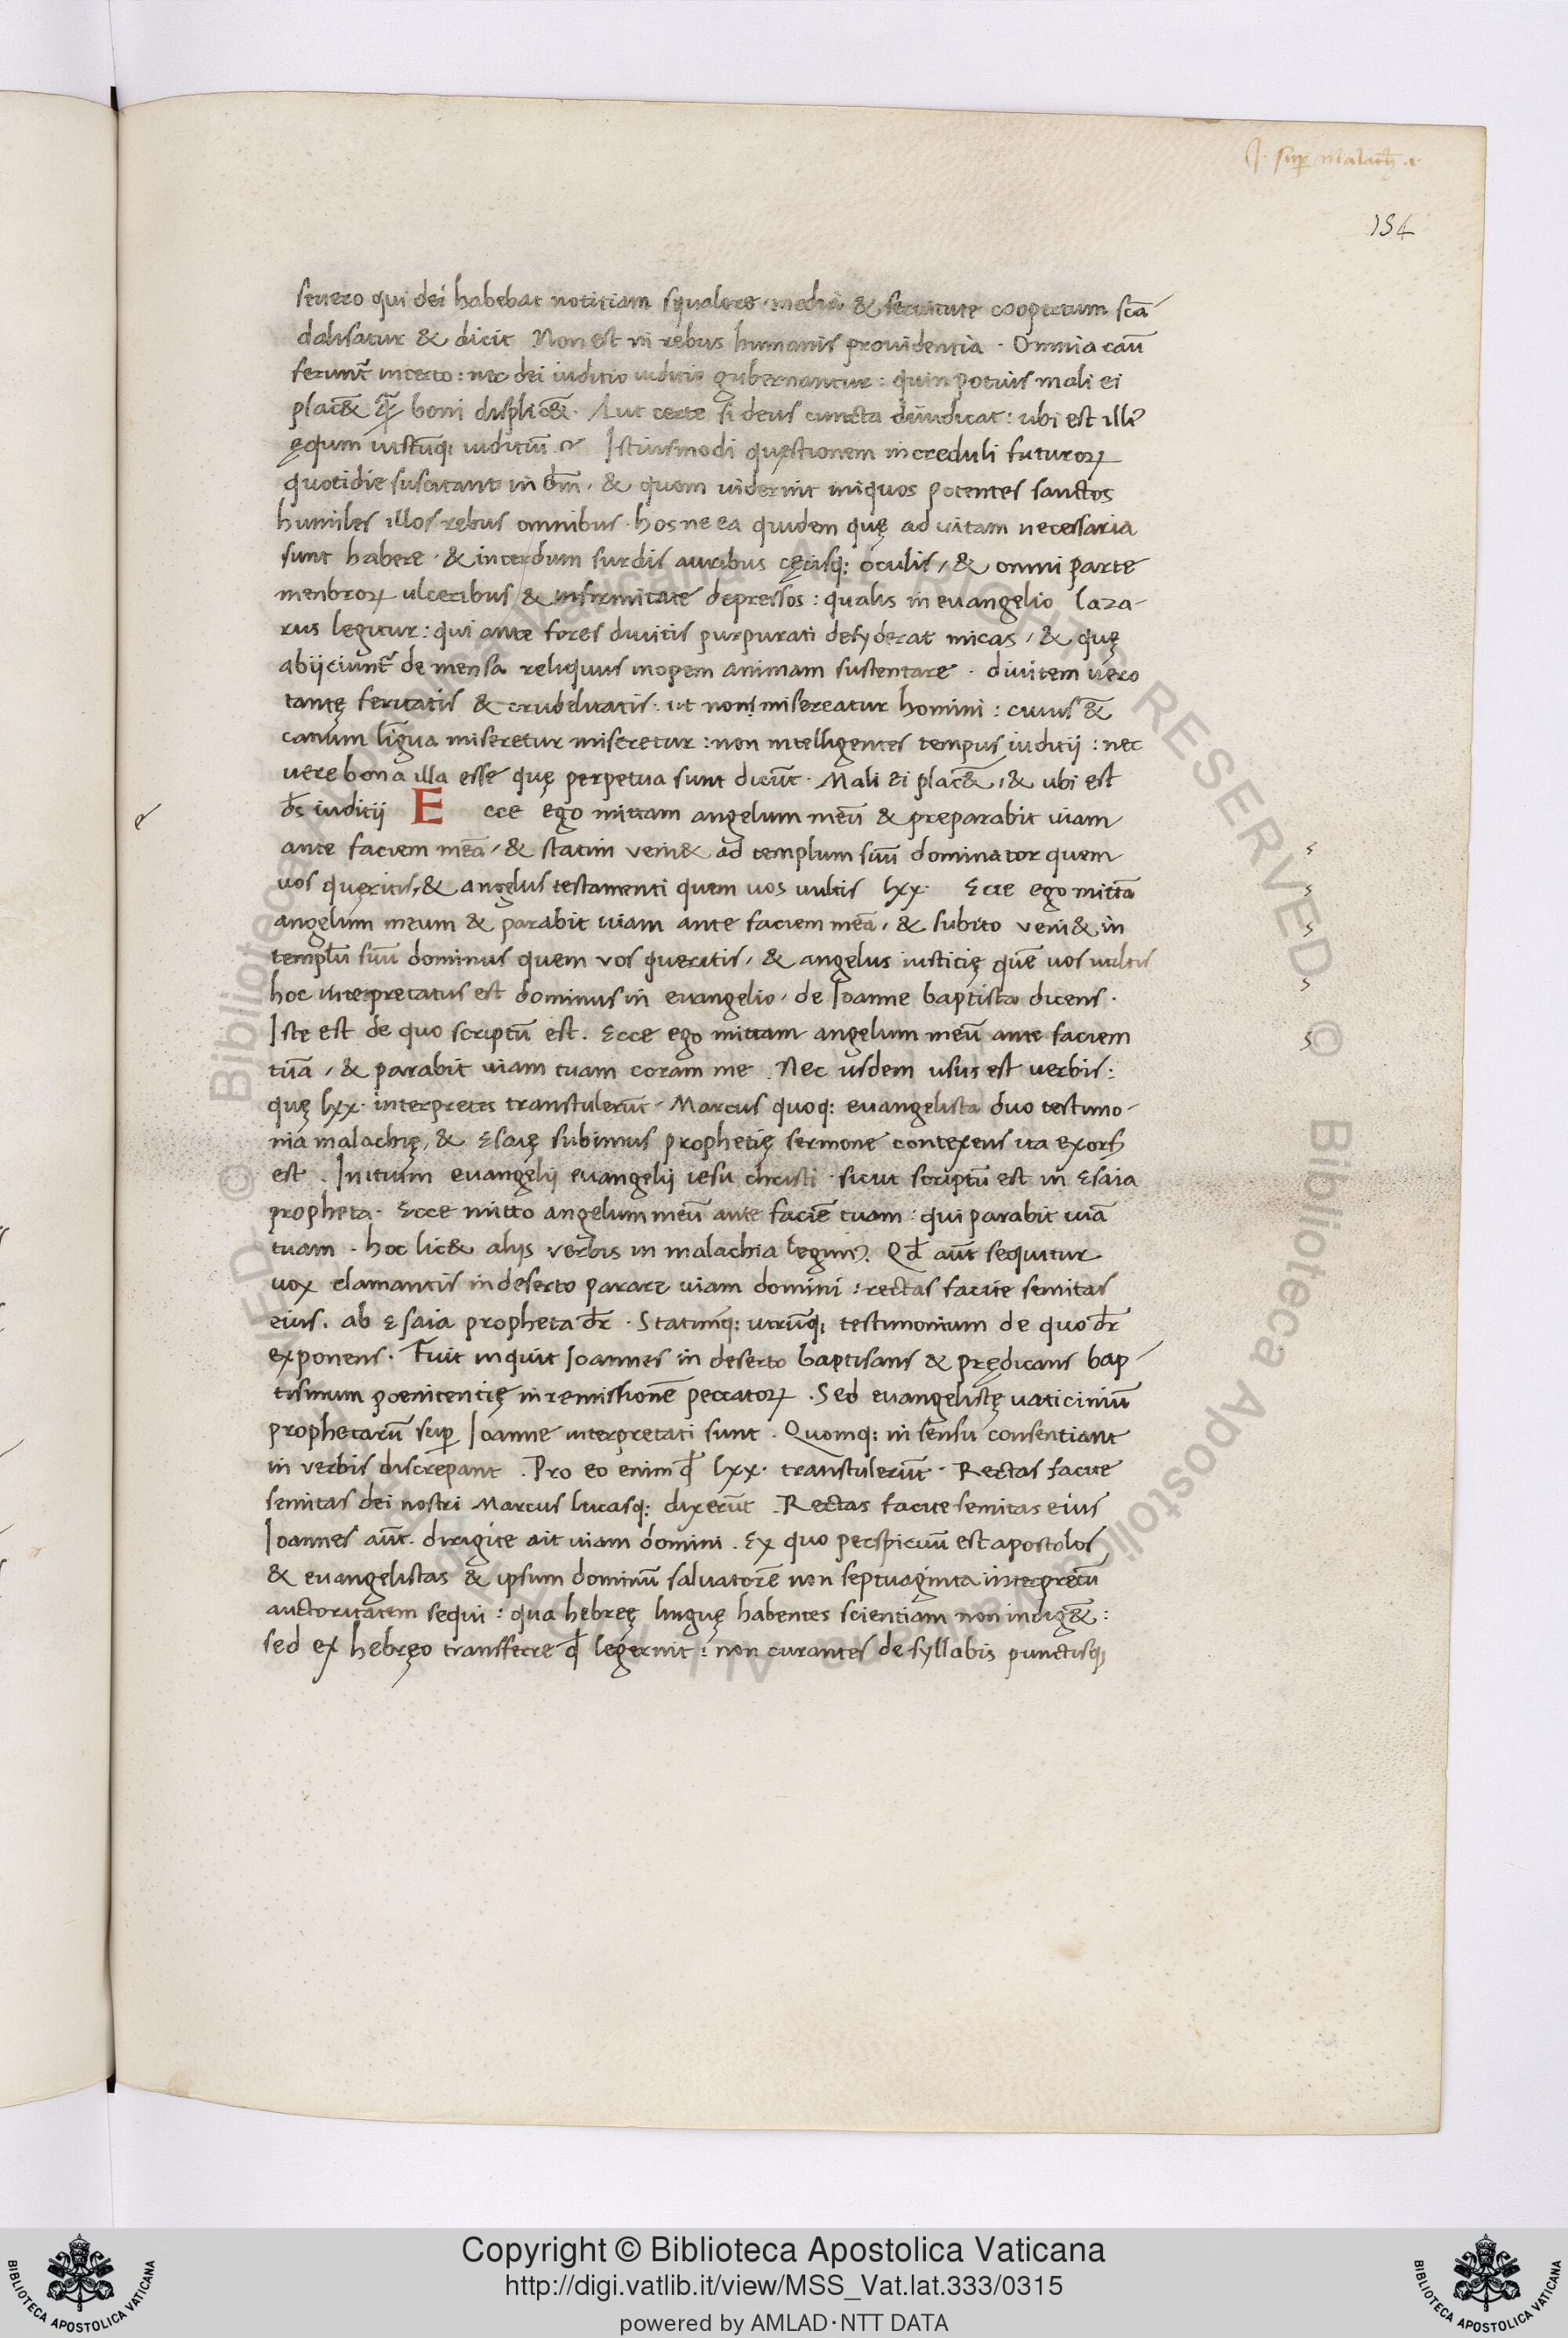 J. sup̄ malach̄ .i.
154
seuero qui dei habebat notitiam squalore, media & seruitute coopertum scā
dalisatur & dicit Non est in rebus humanis prouidentia . Omnia caū
ferunt̄ incerto : nec dei iuditio iuditio gubernantur : quin potius mali ei
plac&̄ q̄ꝫ boni displic&̄. Aut certe si deus cuncta diiudicat : ubi est illi᷒
ęqum iustūq; iuditiū Istiusmodi quęstionem increduli futuroꝝ
quotidie suscitant in d̄m, & quom uiderint iniquos potentes sanctos
humiles illos rebus omnibus . hos ne ea quidem quę ad uitam necessaria
sunt habere . & interdum surdis auribus cęcisq; oculis, & omni parte
menbroꝝ ulceribus & infirmitate depressos : qualis in euangelio laza-
rus legitur : qui ante fores diuitis purpurati desyderat micas, & quę
abijciunt̄ de mensa reliquiis inopem animam sustentare . diuitem uero
tantę feritatis & crudelitatis . ut non misereatur homini : cuius &̄
canum līgua miseretur miseretur : non intelligentes tempus iuditij : nec
uere bona illa esse quę perpetua sunt dicūt . Mali ei plac&̄, & ubi est
d̄s iuditij E cce ego mittam angelum meū & preparabit uiam
ante faciem meā, & statim ueni& ad templum suū dominator quem
uos queritis, & angelus testamenti quem uos uultis lxx . Ecce ego mittā
angelum meum & parabit uiam ante faciem meā, & subito ueni& in
templū suū dominus quem vos queritis, & angelus iusticię quē uos uultis
hoc interpretatus est dominus in euangelio, de Ioanne baptista dicens .
Iste est de quo scriptū est . Ecce ego mittam angelum meū ante faciem
tuā, & parabit uiam tuam coram me . Nec iisdem usus est uerbis :
quę lxx . interpretes transtulerūt . Marcus quoq; euangelista duo testimo-
nia malachię, & Esaię subimus prophetię sermone contexens ita exors᷒
est . Initium euangelij euangelij iesu christi . sicut scriptū est in Esaia
propheta . Ecce mitto angelum meū ante faciē tuam : qui parabit uiā
tuam . hoc lic& alijs verbis in malachia legim᷒ . Qd̄ aūt sequitur
uox clamantis in deserto parare uiam domini : rectas facite semitas
eius . ab Esaia propheta dr̄ . Statimq; utrūq; testimonium de quo dr̄
exponens . Fuit inquit Ioannes in deserto baptisans & prędicans bap-
tismum poenitentię in remissionē peccatoꝝ . Sed euangelistę uaticiniū
prophetarū sup̄ Ioanne interpretati sunt . Quomq; in sensu consentiant
in verbis discrepant . Pro eo enim qd̄ lxx . transtulerūt . Rectas facite
semitas dei nostri Marcus lucasq; dixerūt . Rectas facite semitas eius
Ioannes aūt . dirigite ait uiam domini . Ex quo perspicuū est apostolos
& euangelistas & ipsum dominū saluatorē non septuaginta interpretū
auctoritatem sequi : qua hebreę linguę habentes scientiam non indig&̄ :
sed ex hebręo transferre qd̄ legerint : non curantes de syllabis punctisq;
© Biblioteca Apostolica Vaticana ALL RIGHTS RESERVED
Copyright © Biblioteca Apostolica Vaticana
http://digi.vatlib.it/view/MSS_Vat.lat.333/0315
powered by AMLAD·NTT DATA
BIBLIOTECA APOSTOLICA VATICANA
BIBLIOTECA APOSTOLICA VATICANA